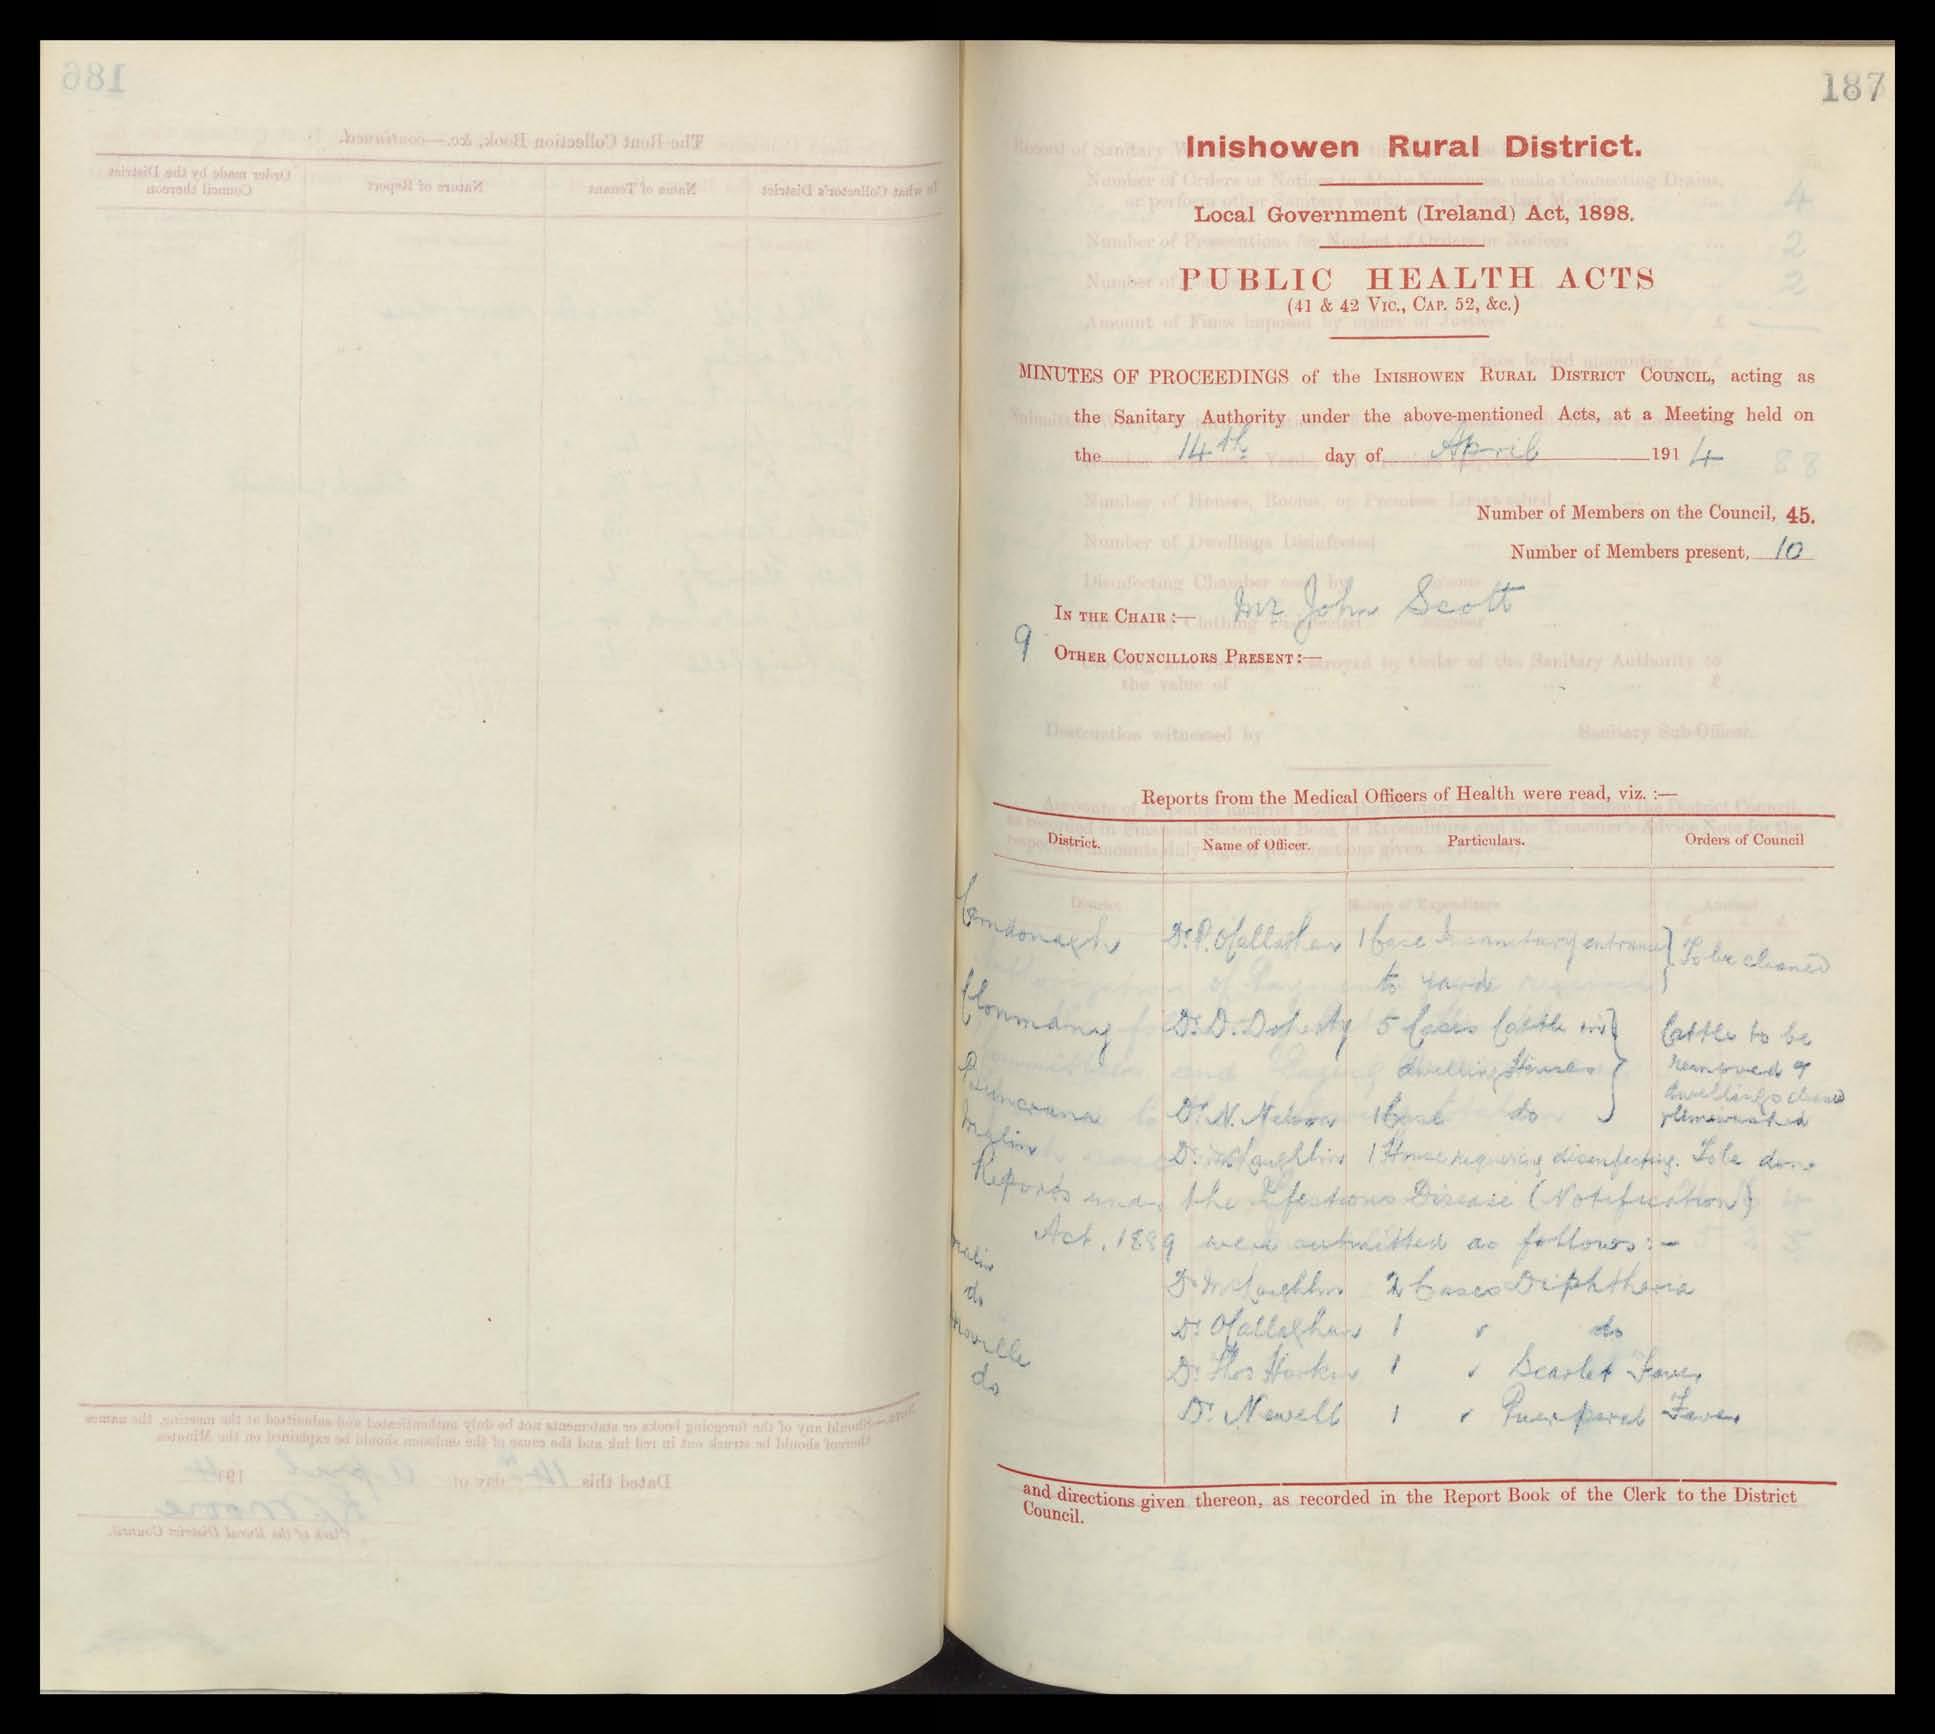 187
Inishowen Rural District.
Local Government (Ireland) Act, 1898.
PUBLIC HEALTH ACTS
(41 & 42 Vic., Cap. 52, &c.)
MINUTES OF PROCEEDINGS of the Inishowen Rural District Council, acting as
the Sanitary Authority under the above-mentioned Acts, at a Meeting held on
the 14th day of April 1914
Number of Members on the Council, 45.
Number of Members present, 10
In the Chair :— Mr John Scott
9 Other Councillors Present :—
Reports from the Medical Officers of Health were read, viz. :—
District. Name of Officer. Particulars. Orders of Council
Carndonagh Dr. P. O'Callaghan 1 Case Insanitary entrance } To be cleaned
to yard
Clonmany Dr. D. Doherty 5 Cases Cattle in } Cattle to be
dwelling Houses removed &
dwellings cleaned
Buncrana Dr. N. Nelson 1 Case do limewashed
Malin Dr. McLaughlin 1 House requiring disinfecting. To be done
Reports under the Infectious Disease (Notification)
Act, 1889 were submitted as follows :-
Malin Dr McLaughlin 2 Cases Diphtheria
do Dr O'Callaghan 1 " do
Moville Dr Thos Harkin 1 " Scarlet Fever
do Dr. Newell 1 " Puerperal Fever
and directions given thereon, as recorded in the Report Book of the Clerk to the District
Council.